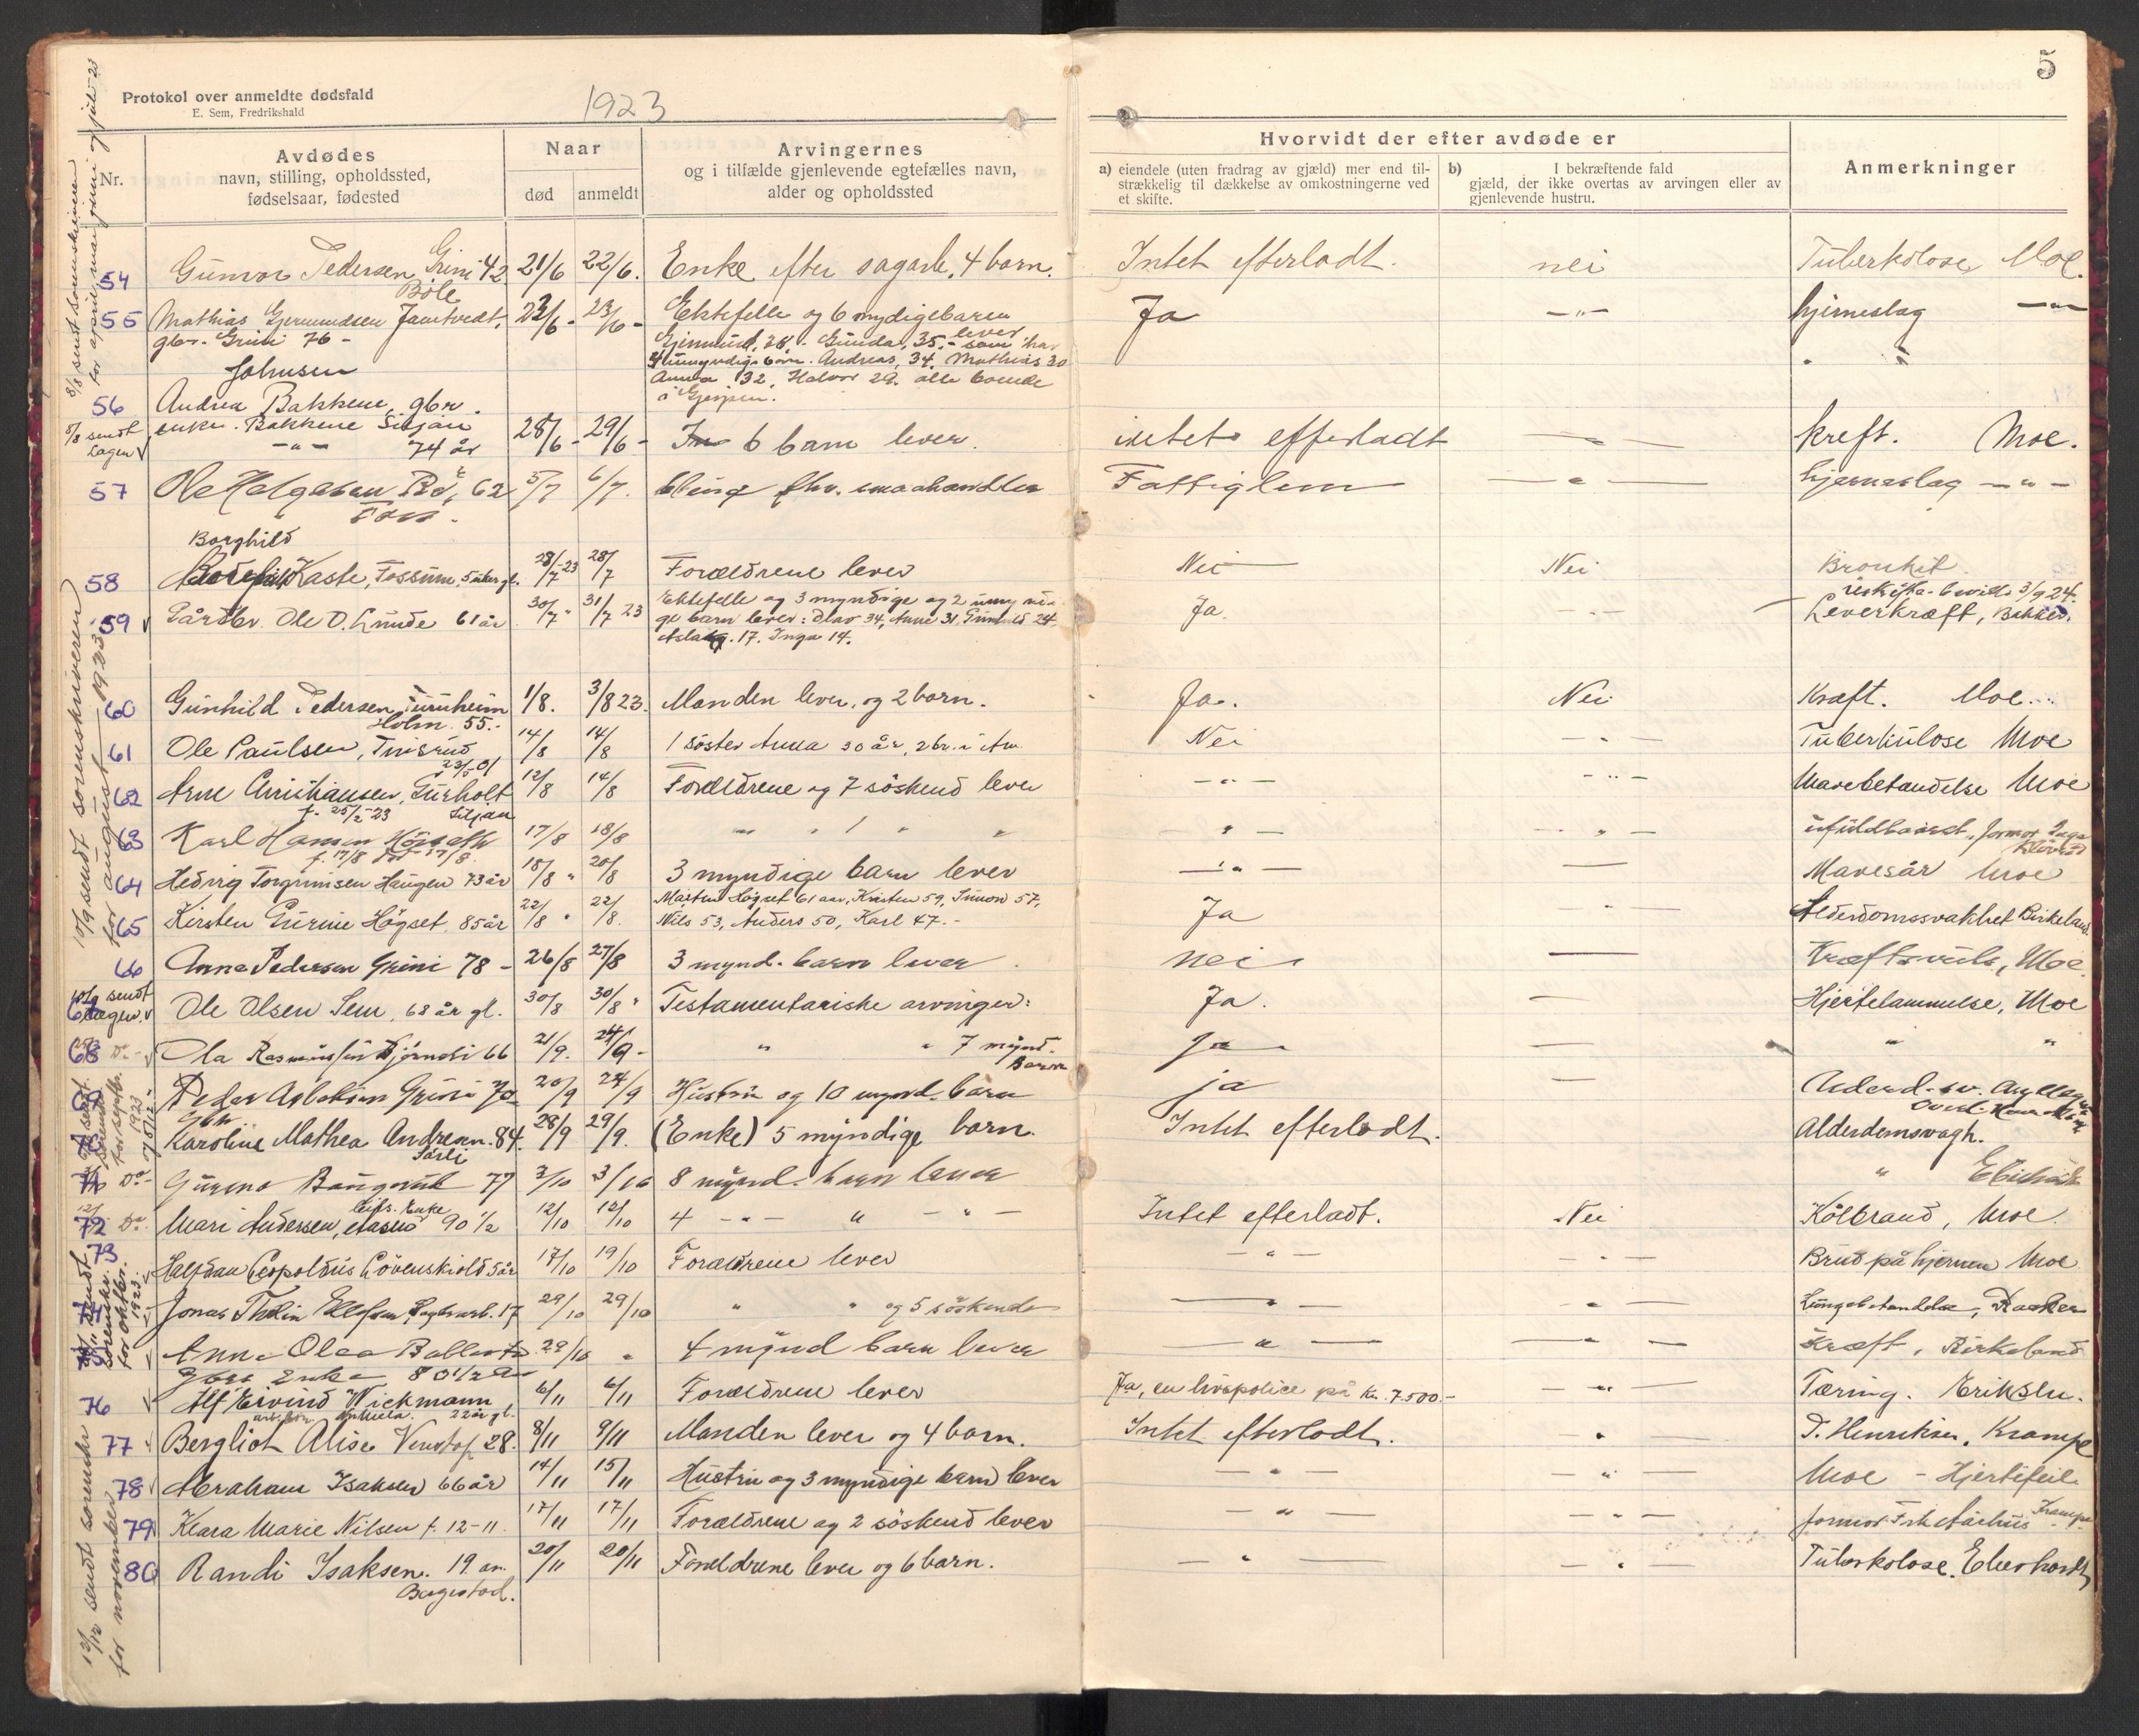 5
Protokol over anmeldte dødsfald
E. Sem, Fredrikshald
1923
Nr.
Avdødes
navn, stilling, opholdssted,
fødselsaar, fødested
Naar
død
anmeldt
Arvingernes
og i tilfælde gjenlevende egtefælles navn,
alder og opholdssted
Hvorvidt der efter avdøde er
a) eiendele (uten fradrag av gjæld) mer end til-
strækkelig til dækkelse av omkostningerne ved
et skifte.
b) I bekræftende fald
gjæld, der ikke overtas av arvingen eller av
gjenlevende hustru.
Anmerkninger
8/8 sendt sorenskriveren
for april, mai juni og juli -23
54 Gunvor Pedersen Grini 42 21/6 22/6. Enke efter sagarb. 4 barn. Intet efterladt. nei Tuberkolose Moe.
Böle
55 Mathias Gjermundsen Jamtvedt, 23/6 - 23/6 - Ektefelle og 6 mydige barn Ja -"- hjerneslag -"-
gbr. Grini 76 - lever
Gjermund, 28, Gunda, 35, - som har
4 umyndige barn. Andreas, 34, Mathias 30
Johnsen Anna 32, Halvor 29. alle boende
i Gjerpen.
56 Andrea Bakkene, gbr.
5/8 sendt enke. Bakkene Siljan 28/6 - 29/6 - 6 barn lever. intet efterladt - " - kreft. Moe.
Lagen -"- 74 år
57 Ole Helgesen 62 5/7 6/7. fhv. smaahandler Fattiglem - " - hjerneslag -"-
Borghild
58 Kaste, Fossum, 5 uker gl. 28/7-23 28/7 Forældrene lever Nei Nei Bronkit
uskifte- bevill. 3/9 24.
59 Gårdbr. Ole O. Lunde 61 år 30/7 " 31/7 23 Ektefelle og 3 myndige og 2 umyndi- Ja. - " - Leverkræft,
ge barn lever: Olav 34, Anne 31, Gunhild 24,
Aslaug. 17. Inga 14.
10/9 sendt sorenskriveren
for august 1923
60 Gunhild Pedersen 1/8. 3/8 23. Manden lever, og 2 barn. Ja. Nei Kræft. Moe.
Holm 55.-
61 Ole Paulsen, 14/8 14/8 1 söster Anna 30 år, 2 br. i Am. Nei - " - Tuberkulose Moe
23/5-01
62 Arne Christiansen, Gurholt 12/8 14/8 Forældrene og 7 söskend lever - " - - " - Mavebetændelse Moe
f. 25/2-23 Siljan
63 Karl Hansen 17/8 18/8 " " 1 " " - " - - " - ufuldbaaret, jormor Inga
f. 17/8 död 17/8.
64 Hedvig Torgrimsen Haugen 73 år 18/8 " 20/8 3 myndige barn lever - " - — Mavesår Moe
65 Kirsten Gurine Högset, 85 år 22/8 " 22/8. Martin Högset 61 aar, Kristen 59, Simon 57, Ja - " - Alderdomssvakhet Birkeland.
Nils 53, Anders 50, Karl 47.-
66 Anna Pedersen Grini 78 - 26/8 27/8 3 mynd. barn lever. nei — Kræftsvulst, Moe.
10/9 sendt
67 Ole Olsen Sem, 68 år gl. 30/8 30/8 " Testamentariske arvinger: Ja. — Hjertelammelse, Moe
68 Do - Ola Rasmussen Bjørndi 66 21/9. 24/9 - " " 7 mynd. Ja — " "
Barn
69 Peder Aslaksen Grini 70 20/9 24/9 Hustru og 10 mynd. barn ja — Alderd. sv.
for septbr. 1923
Gbr
Karoline Mathea Andresen. 84. 28/9 29/9. (Enke) 5 myndige barn. Intet efterladt. Alderdomsvagh.
Do - 77 3/10 3/10 8 mynd. barn lever "
72 Do. Mari Andersen, Enke 90 1/2 12/10 12/10 4 - " - " - " - Intet efterladt. Nei Kolbrand, Moe.
73 Halfdan Leopoldus Lövenskiold 5 år 17/10 19/10 Forældrene lever - " - - " - Brud på hjernen Moe
sendt sorenskr. for oktbr. 1923
74 Jonas Thelin Ellefsen 17 29/10 29/10 " " og 5 söskende - " - - " - Lungebetændelse,
Anne Olea 29/10 " 4 mynd barn lever - " - - " - Kræft, Birkeland
Enke 80 1/2 år
76 Alf Eivind Wickmann 6/11 6/11 Forældrene lever Ja, en livspolice på kr. 7.500.- - " - Tæring. Eriksen.
22 år gl.
77 Bergliot Alise Venstøp 28. 8/11 9/11 Manden lever og 4 barn. Intet efterladt. " D. Henriksen. Krampe
78 Abraham Isaksen 66 år 14/11 15/11 Hustru og 3 myndige barn lever - " - - " - Moe - Hjertefeil
79 Klara Marie Nilsen f. 12-11. 17/11 17/11 Forældrene og 2 söskend lever - " - - " - jormor Frk Aarhus Krampe
80 Randi Isaksen. 19 år. 20/11 20/11 Foreldrene lever og 6 barn. - " - - " - Tuberkolose. Eberhardt
Borgestad.
12/12 sendt sorenskr
for november